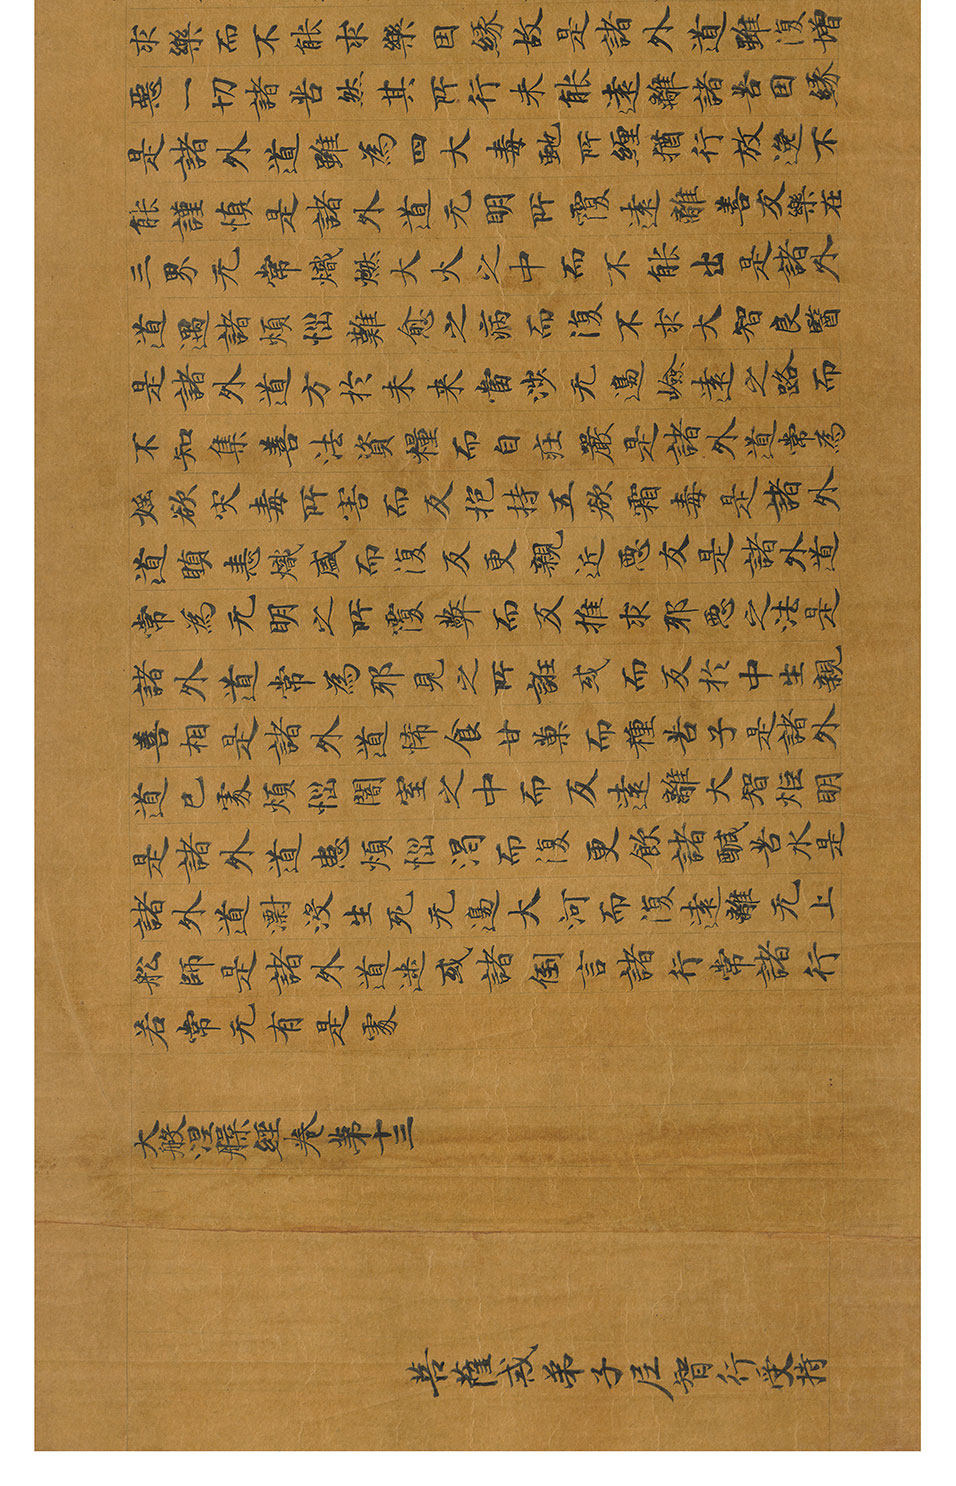 求樂而不能求樂因緣故是諸外道雖復憎
惡一切諸苦然其所行未能遠離諸苦因緣
是諸外道雖為四大毒虵所纏猶行放逸不
能謹慎是諸外道无明所覆遠離善友樂在
三界无常熾燃大火之中而不能出是諸外
道遇諸煩惱難愈之病而復不求大智良醫
是諸外道方於未来當涉无邊嶮遠之路而
不知集善法資糧而自莊嚴是諸外道常為
婬欲灾毒所害而反抱持五欲霜毒是諸外
道瞋恚熾盛而復反更親近惡友是諸外道
常為无明之所覆弊而反推求邪惡之法是
諸外道常為邪見之所誑或而反於中生親
善相是諸外道悕食甘菓而種苦子是諸外
道已處煩惱闇室之中而反遠離大智炬明
是諸外道患煩惱渴而復更飲諸醎苦水是
諸外道漂没生死无邊大河而復遠離无上
舩師是諸外道迷或諸倒言諸行常諸行
若常无有是處
大般涅槃經卷第十三
菩薩戒弟子屈智行受持